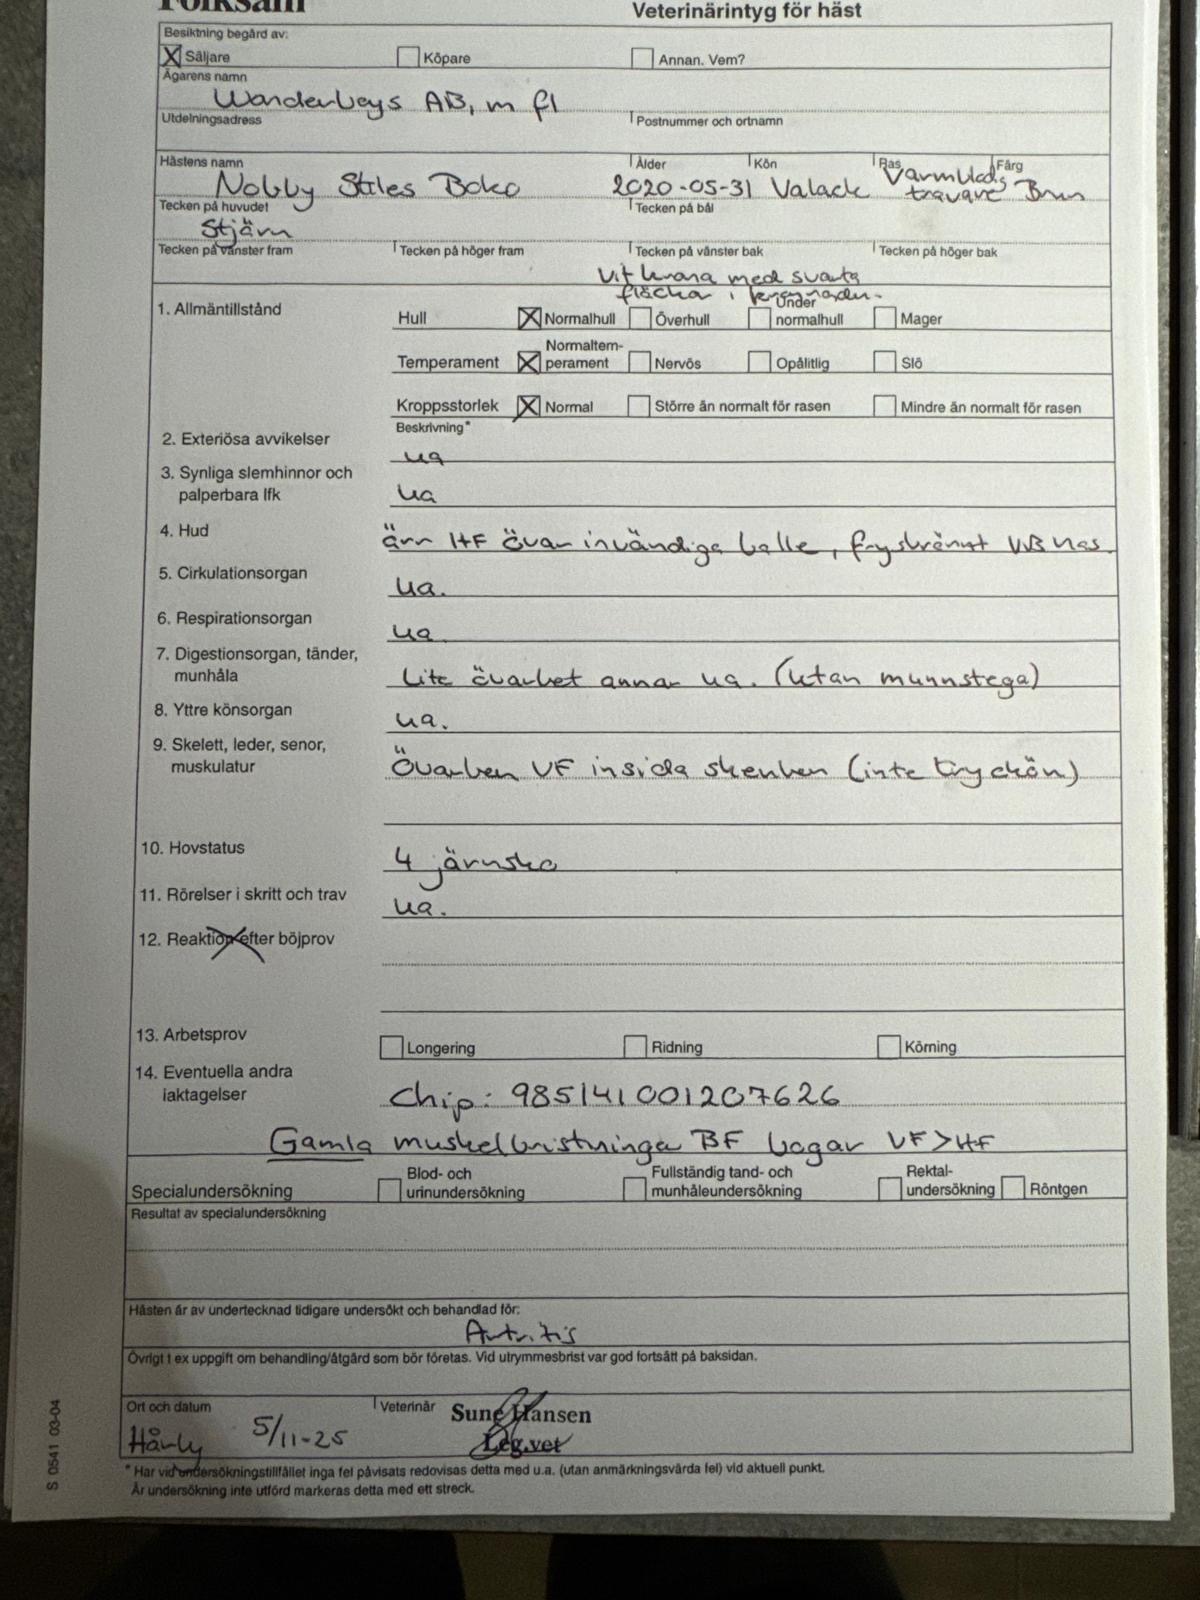 Folksam
Veterinärintyg för häst
Besiktning begärd av:
X Säljare Köpare Annan. Vem?
Ägarens namn
Wonderboys AB, m fl
Utdelningsadress Postnummer och ortnamn
Hästens namn Ålder Kön Ras Färg
Nobby Stiles Boko 2020-05-31 Valack Varmblods travare Brun
Tecken på huvudet Tecken på bål
Stjärn
Tecken på vänster fram Tecken på höger fram Tecken på vänster bak Tecken på höger bak
Vit krona med svarta
fläckar i kronranden.
1. Allmäntillstånd Hull X Normalhull Överhull Under normalhull Mager
Temperament X Normaltem-perament Nervös Opålitlig Slö
Kroppsstorlek X Normal Större än normalt för rasen Mindre än normalt för rasen
Beskrivning*
2. Exteriösa avvikelser ua
3. Synliga slemhinnor och
palperbara lfk ua
4. Hud ärr HF övar invändiga balle, frysbränt VB has.
5. Cirkulationsorgan ua.
6. Respirationsorgan ua
7. Digestionsorgan, tänder,
munhåla Lite överbet annar ua. (utan munnstega)
8. Yttre könsorgan ua.
9. Skelett, leder, senor,
muskulatur Överben VF insida skenben (inte tryckön)
10. Hovstatus 4 järnsko
11. Rörelser i skritt och trav ua.
12. Reaktion efter böjprov
13. Arbetsprov Longering Ridning Körning
14. Eventuella andra
iaktagelser Chip: 985141001207626
Gamla muskelbristninga BF bogar VF>HF
Specialundersökning Blod- och urinundersökning Fullständig tand- och munhåleundersökning Rektal-undersökning Röntgen
Resultat av specialundersökning
Hästen är av undertecknad tidigare undersökt och behandlad för:
Artritis
Övrigt t ex uppgift om behandling/åtgärd som bör företas. Vid utrymmesbrist var god fortsätt på baksidan.
Ort och datum Veterinär
Hårby 5/11-25 Sune Hansen
Leg.vet
* Har vid undersökningstillfället inga fel påvisats redovisas detta med u.a. (utan anmärkningsvärda fel) vid aktuell punkt.
Är undersökning inte utförd markeras detta med ett streck.
S 0541 03-04